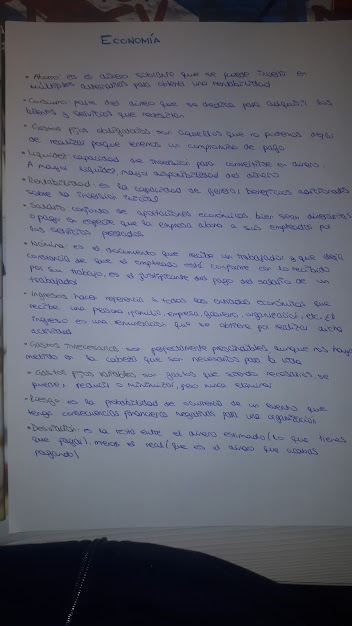 ECONOMÍA
• Ahorro: es el dinero sobrante que se puede invertir en
múltiples alternativas para obtener una rentabilidad
• Consumo parte del dinero que se dedica para adquirir los
bienes y servicios que necesitan
• Gastos fijos obligatorios son aquellos que no podemos dejar
de realizar porque tenemos un compromiso de pago
• Liquidez capacidad de inversión para convertirse en dinero.
A mayor liquidez, mayor disponibilidad del dinero
• Rentabilidad: es la capacidad de generar beneficios adicionales
sobre la inversión inicial
• Salario conjunto de aportaciones económicas, bien sean dinerarias
o pago en especie que la empresa abona a sus empleados por
los servicios prestados
• Nómina: es el documento que recibe un trabajador y que deja
constancia de que el empleado está conforme con lo recibido
por su trabajo, es el justificante del pago del salario de un
trabajador
• Ingresos hace referencia a todas las entradas económicas que
recibe una persona, familia, empresa, gobierno, organización, etc. El
ingreso es una remuneración que se obtiene por realizar dicha
actividad
• Gastos innecesarios son perfectamente prescindibles aunque nos hayan
metido en la cabeza que son necesarios para la vida
• Gastos fijos variables son gastos que siendo necesarios, se
pueden reducir o minimizar, pero nunca eliminar
• Riesgo: es la probabilidad de ocurrencia de un evento que
tenga consecuencias financieras negativas para una organización
• Desviación: es la resta entre el dinero estimado (lo que tienes
que pagar) menos el real (que es el dinero que acabas
pagando)